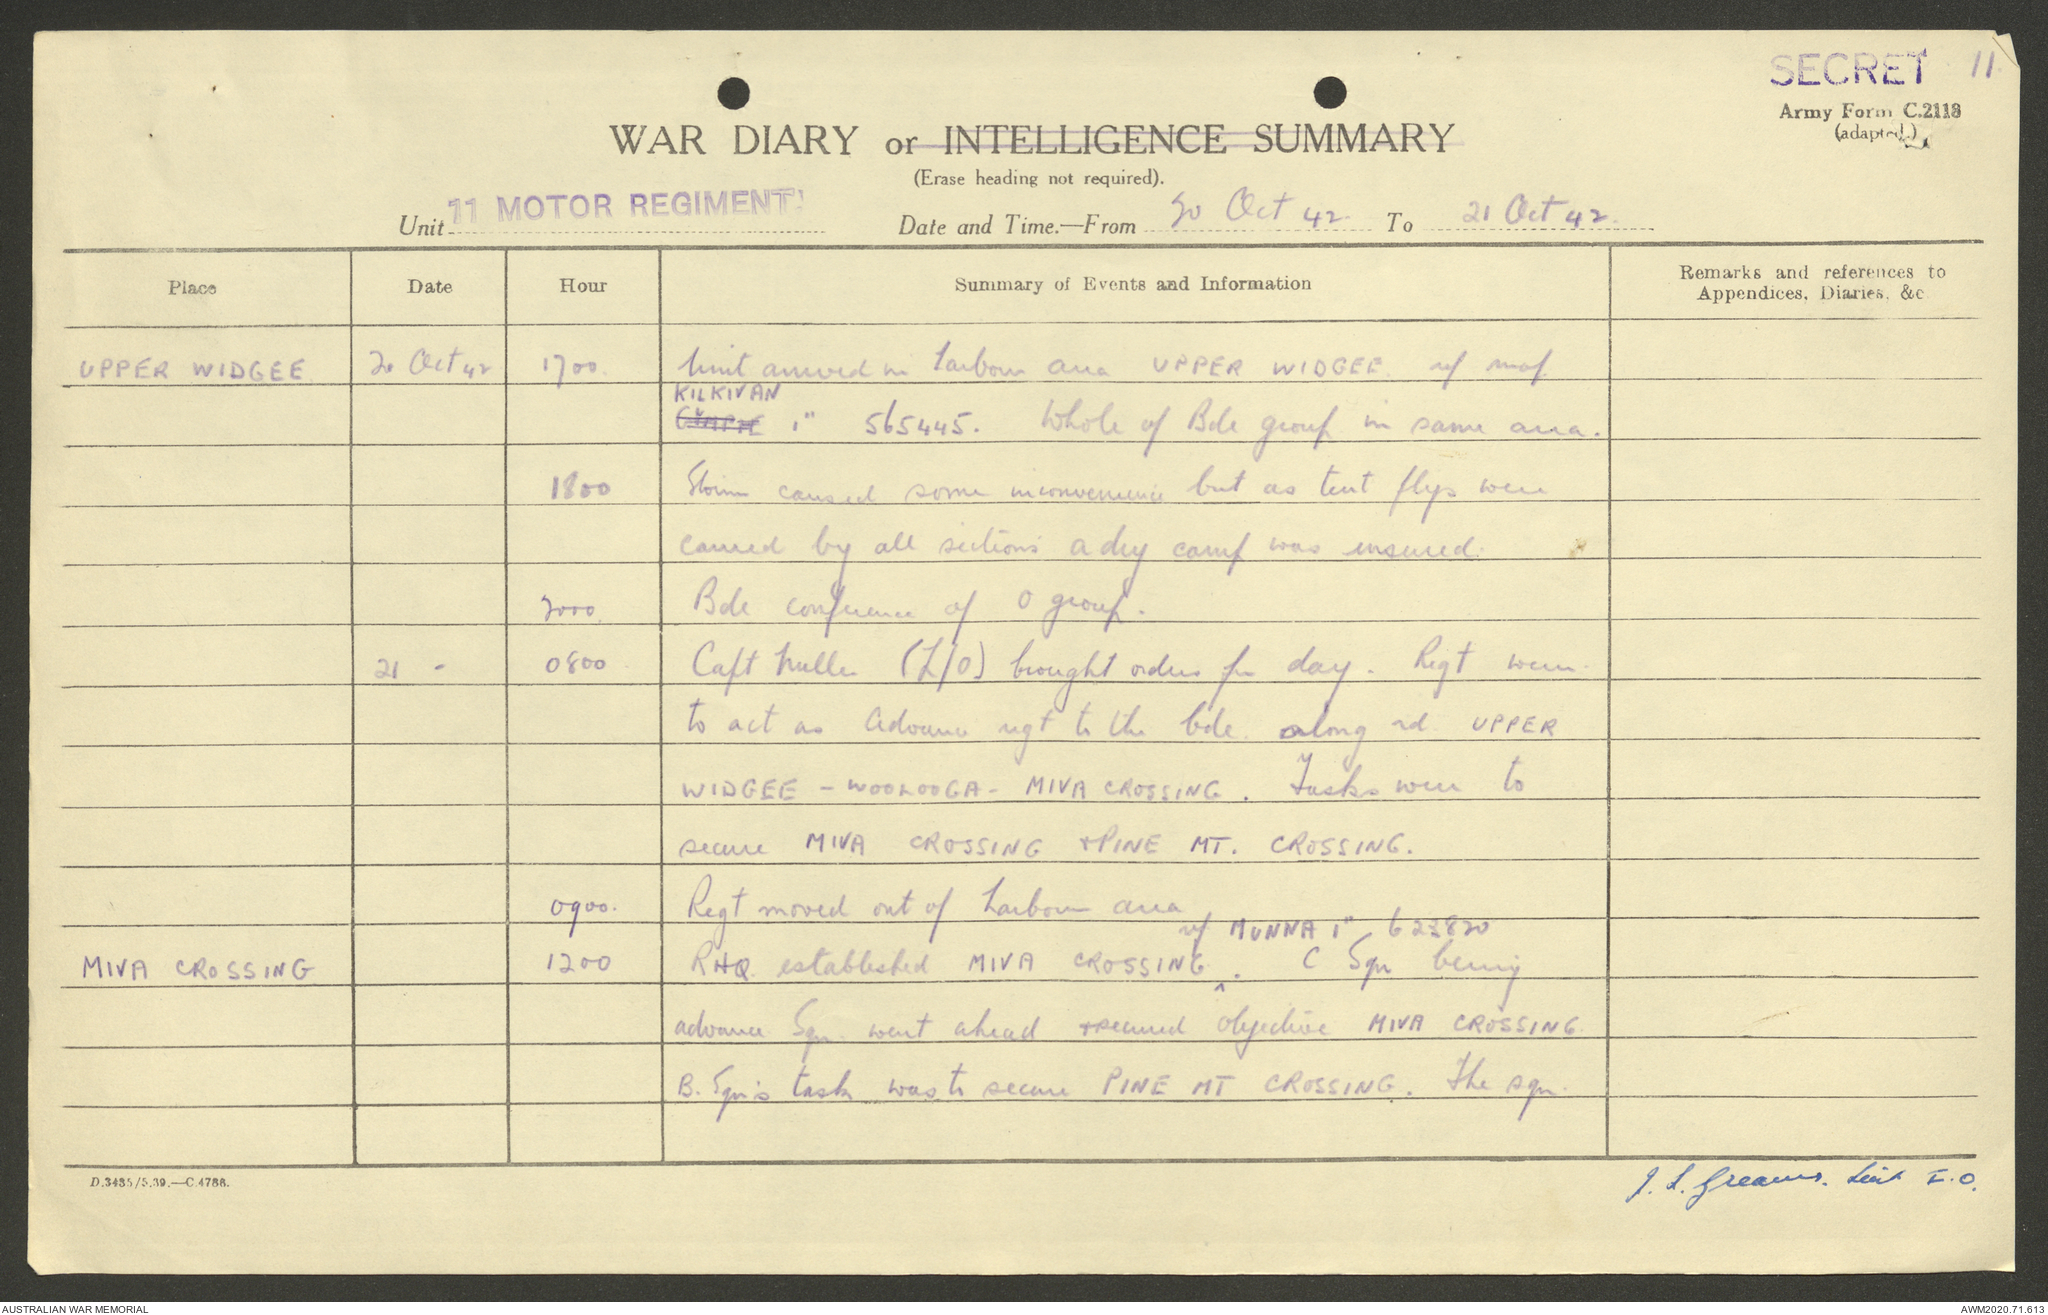 SECRET 11.
Army Form C.2118
(adapted.)
WAR DIARY or INTELLIGENCE SUMMARY
(Erase heading not required).
Unit 11 MOTOR REGIMENT. Date and Time.—From 20 Oct 42. To 21 Oct 42.
Place Date Hour Summary of Events and Information Remarks and references to
Appendices, Diaries, &c
UPPER WIDGEE 20 Oct 42 1700. Unit arrived in harbour area UPPER WIDGEE ref map
KILKIVAN
1" 565445. Whole of Bde group in same area.
1800 Storm caused some inconvenience but as tent flys were
carried by all sections a dry camp was ensured.
2000. Bde conference of O group.
21 - 0800 Capt (L/O) brought orders for day. Regt were
to act as Advance regt to the bde along rd UPPER
WIDGEE - WOOLOOGA - MIVA CROSSING. Tasks were to
secure MIVA CROSSING + PINE MT. CROSSING.
0900. Regt moved out of harbour area
ref MUNNA 1" 623820
MIVA CROSSING 1200 RHQ established MIVA CROSSING ^. C Sqn being
advance Sqn. went ahead + secured objective MIVA CROSSING
B. Sqn's task was to secure PINE MT CROSSING. The sqn.
D.3435/5.39.—C.4788.
J. L. Lieut I.O.
AUSTRALIAN WAR MEMORIAL AWM2020.71.613